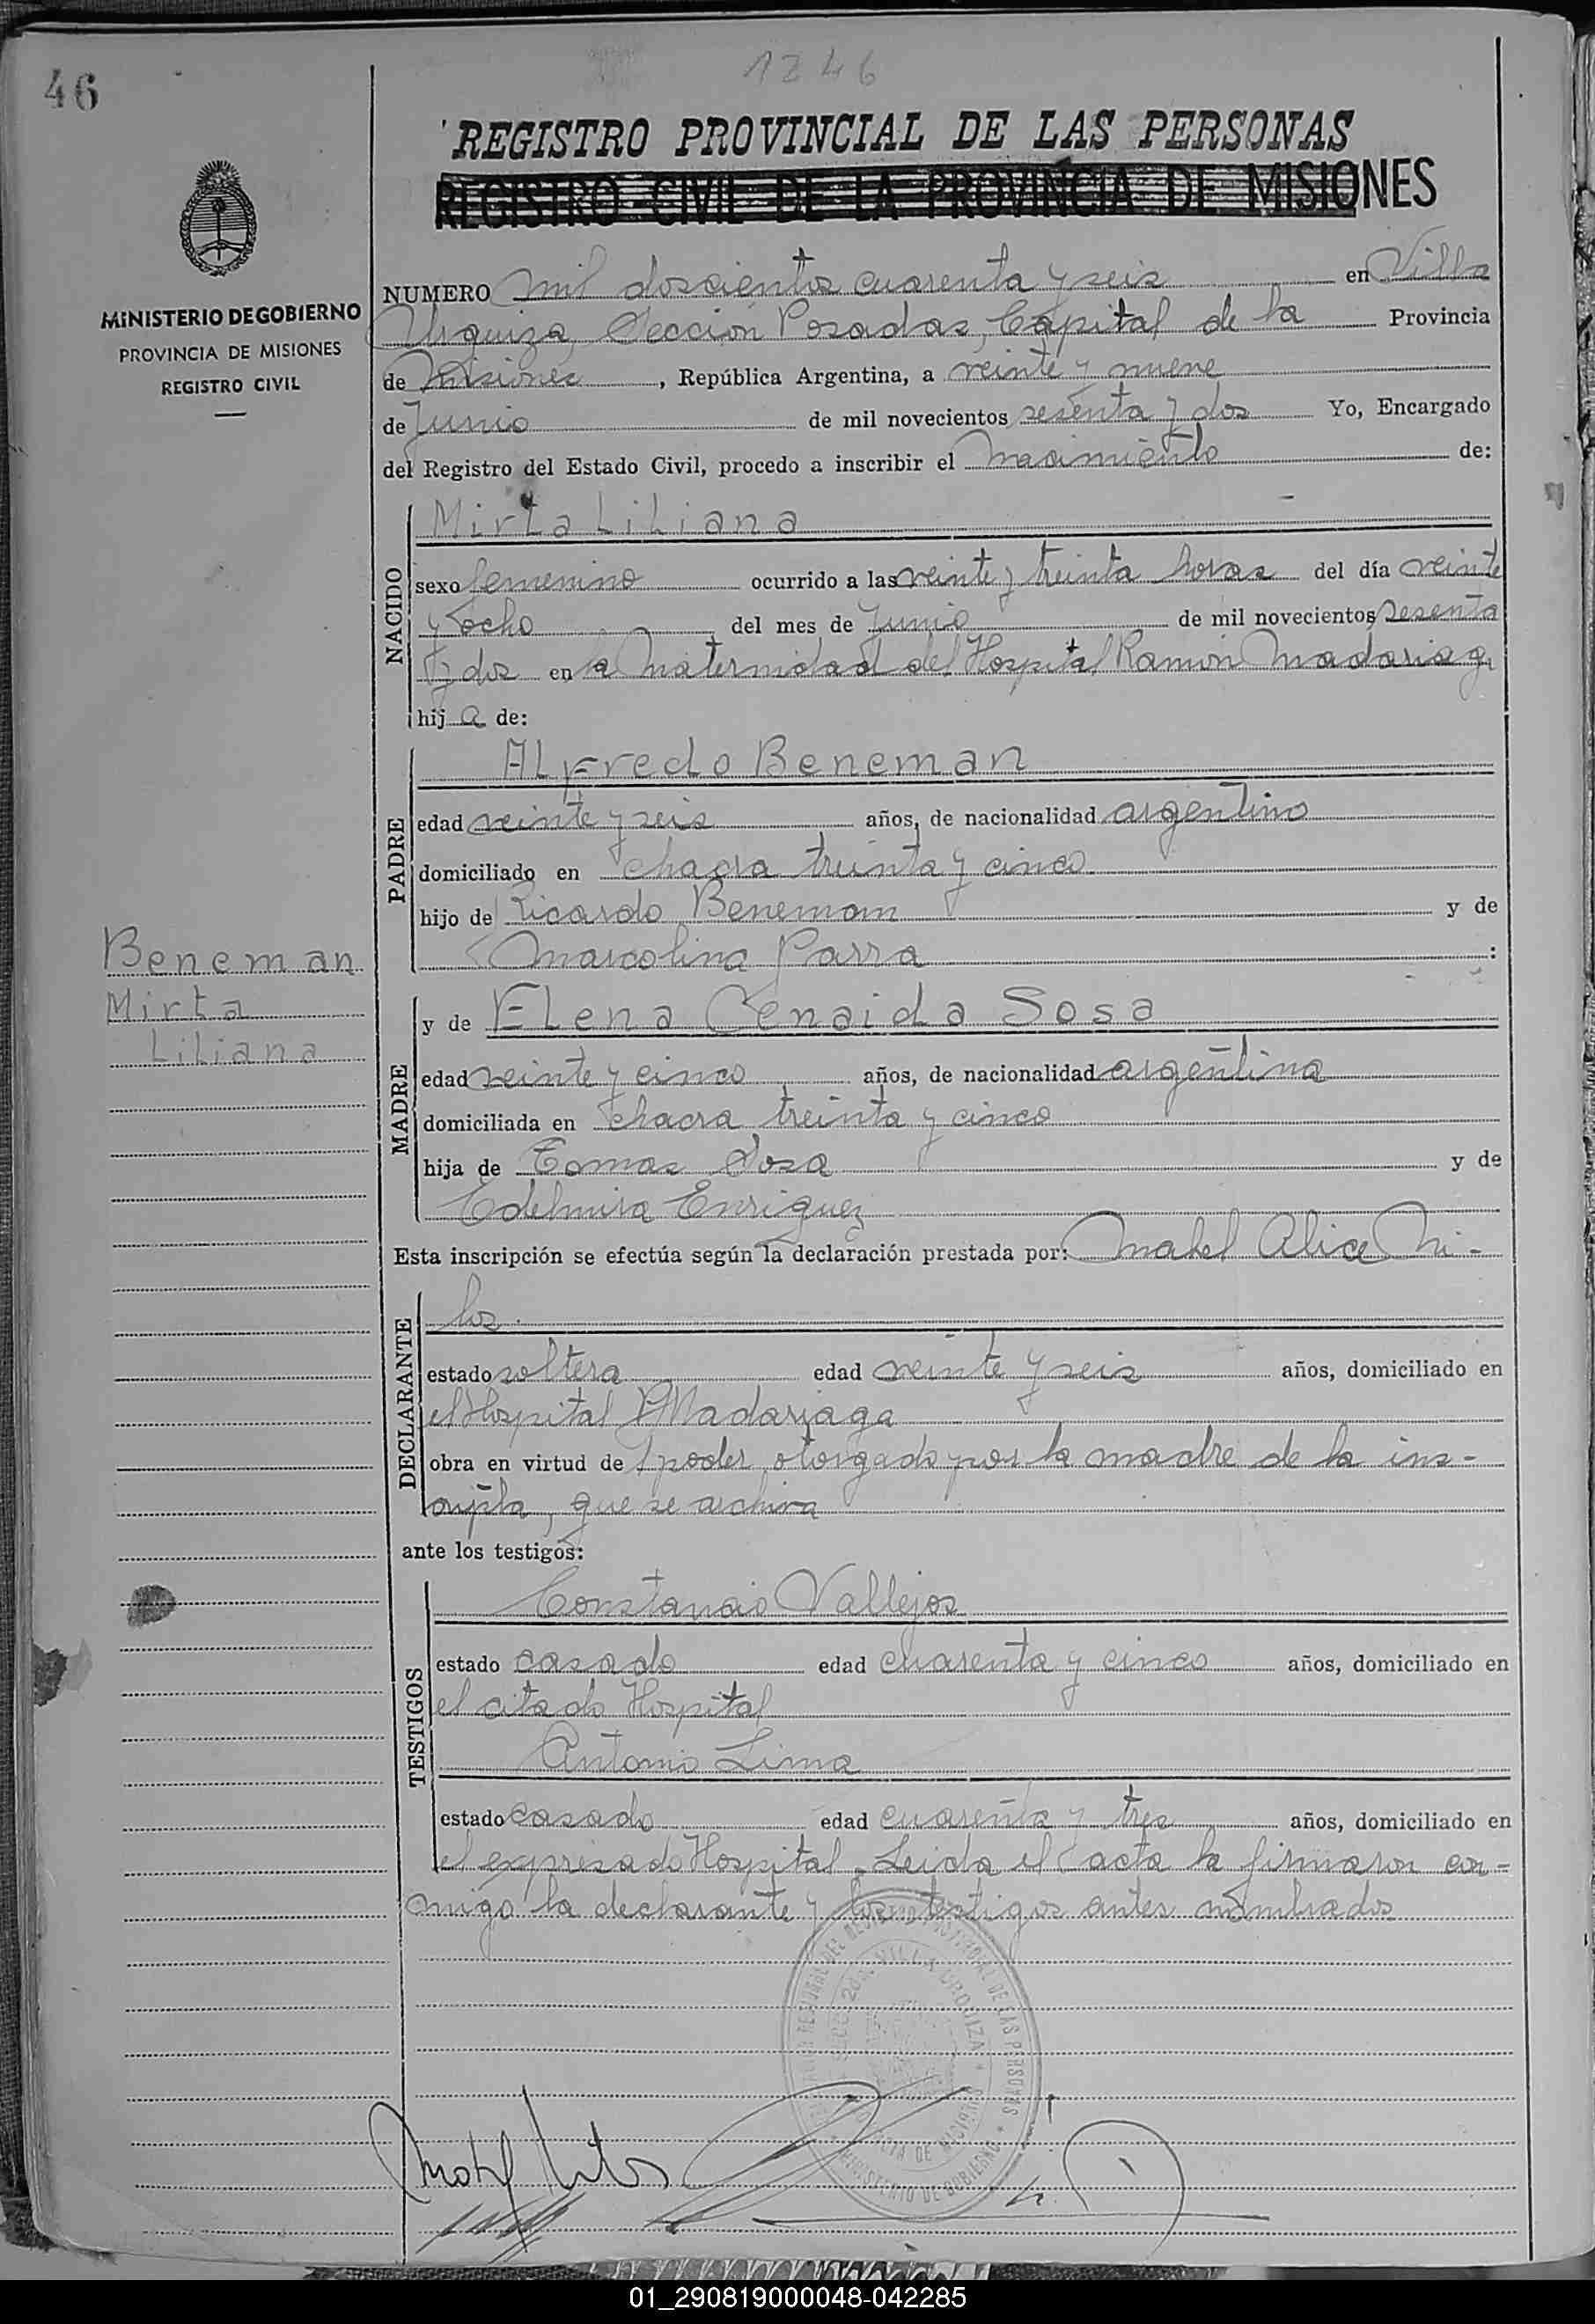 46
1246
REGISTRO PROVINCIAL DE LAS PERSONAS
REGISTRO CIVIL DE LA PROVINCIA DE MISIONES
MINISTERIO DE GOBIERNO
PROVINCIA DE MISIONES
REGISTRO CIVIL
NUMERO mil doscientos cuarenta y seis en Villa
Urquiza, Sección Posadas, Capital de la Provincia
de Misiones, República Argentina, a veinte y nueve
de Junio de mil novecientos sesenta y dos Yo, Encargado
del Registro del Estado Civil, procedo a inscribir el nacimiento de:
NACIDO
Mirta Liliana
sexo femenino ocurrido a las veinte y treinta horas del día veinte
y ocho del mes de Junio de mil novecientos sesenta
y dos en la Maternidad del Hospital Ramón Madariaga
hij a de:
PADRE
Alfredo Beneman
edad veinte y seis años, de nacionalidad argentino
domiciliado en chacra treinta y cinco
hijo de Ricardo Beneman y de
Marcolina Parra :
Beneman
Mirta
Liliana
MADRE
y de Elena Cenaida Sosa
edad veinte y cinco años, de nacionalidad argentina
domiciliada en chacra treinta y cinco
hija de Tomas Sosa y de
Edelmira Enriquez
Esta inscripción se efectúa según la declaración prestada por: Mabel Alice Mi-
los.
DECLARANTE
estado soltera edad veinte y seis años, domiciliado en
el Hospital R Madariaga
obra en virtud de poder otorgado por la madre de la ins-
cripta, que se archiva
ante los testigos:
TESTIGOS
Constancio Vallejos
estado casado edad cuarenta y cinco años, domiciliado en
el citado Hospital
Antonio Lima
estado casado edad cuarenta y tres años, domiciliado en
el expresado Hospital. Leida el acta la firmaron con-
migo la declarante y los testigos antes nombrados
VILLA URQUIZA
MINISTERIO DE GOBIERNO
01_290819000048-042285